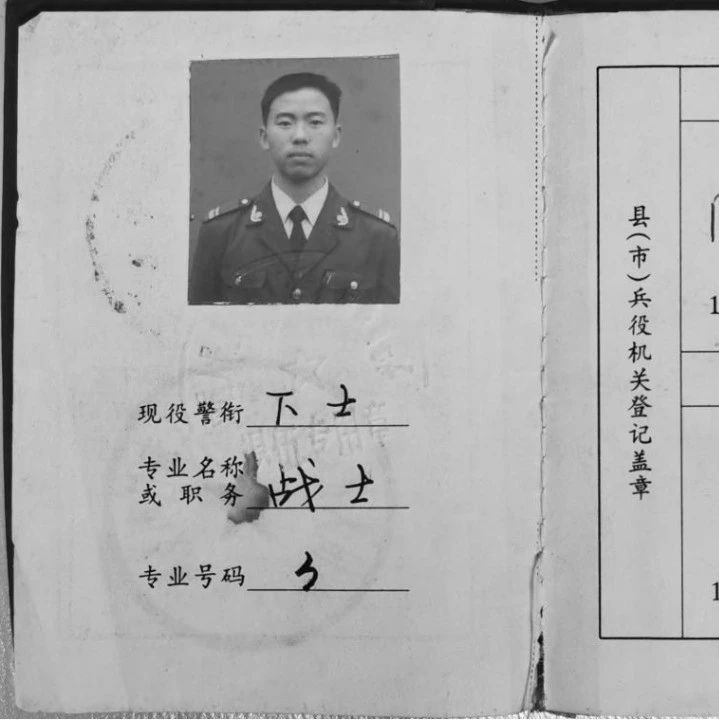 现役警衔 下士
专业名称
或职务 战士
专业号码
县(市)兵役机关登记盖章